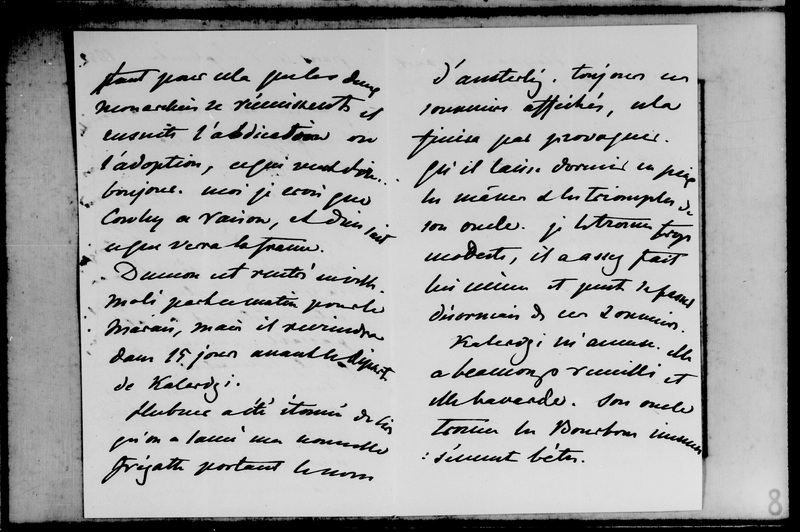 faut pour cela que les deux
monarchies se réunissent et
ensuite l'abdication ou
l'adoption, ce qui veut dire
bonjour. moi je crois que
Cowley a raison, et Dieu sait
ce que verra la france.
Dumon est rentré
Molé part ce matin pour le
Marais, mais il reviendra
dans 15 jours avant le départ
de Kalerdgi.
Hubner a été étonné de lire
qu'on a lancé une nouvelle
frégate portant le nom
d'austerlitz. toujours ces
souvenirs affichés, cela
finira par provoquer.
qu'il laisse dormir en paix
les mânes & les triomphes de
son oncle. je le trouve trop
modeste, il a assez fait
lui même et peut se passer
désormais de ces souvenirs.
Kalerdgi m'amuse. elle
a beaucoup recueilli et
elle bavarde. son oncle
trouve les Bourbons immen
: sément bêtes.
8